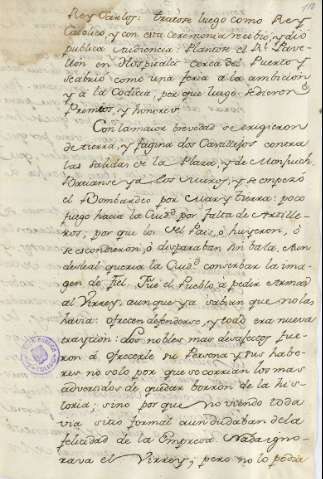 Rey Carlos: tratose luego como Rey
Catolico, y con esta Ceremonia recibio, y dió
publica Audiencia: Plantose el Rl. Pave-
llon en Hospitales cerca del Puerto y
se abrió como una feria a la ambicion
y à la Codicia, por que luego se dieron
Premios, y honores.
Con la maior brevedad se erigieron
de tierra, y fagina dos Cavallejos contra
las salidas de la Plaza, y de Monjuich.
Batianse ya los Muros, y se empezó
el Bombardeo por Mar, y Tierra: poco
fuego hacia la Ciudd. por falta de Artille-
ros, por que los del Pais, ó huyeron, ó
se escondieron, ó disparaban sin bala. Aun
desleal queria la Ciudd. conserbar la ima-
gen de fiel. Fue el Pueblo à pedir Armas
al Virrey, aunque ya sabian que no las
havia: ofrecen defenderse, y todo era nueva
traycion: Los nobles mas desafectos fue-
ron à ofrecerle su Persona y sus habe-
res no solo por que se corrian los mas
adversidos de quedar borron de la his-
toria; sino por que no viendo toda
via sitio formal aun dudaban de la
felicidad de la Empresa. Nada igno-
rava el Virrey; pero no lo podia